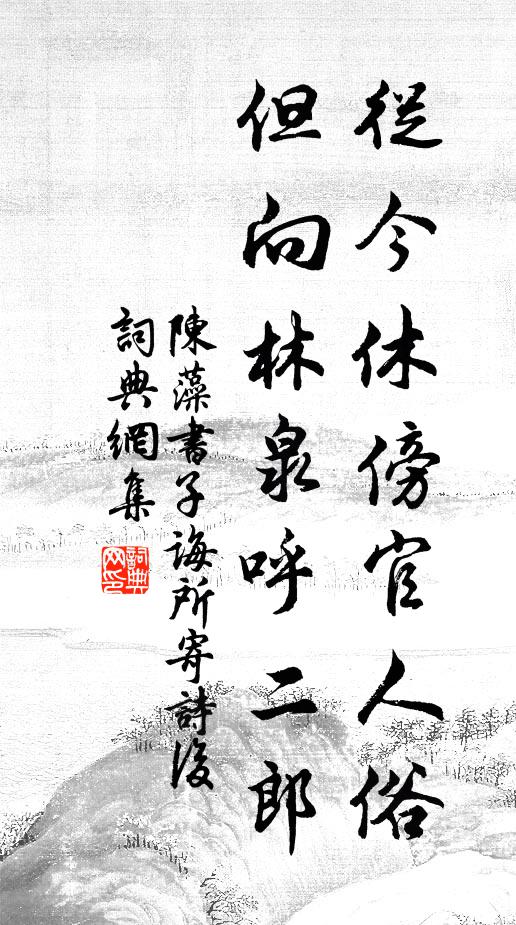 從今休傍官人俗
但向林泉呼二郎
陳藻書子誨所寄詩後
詞典網集
詞典
网印